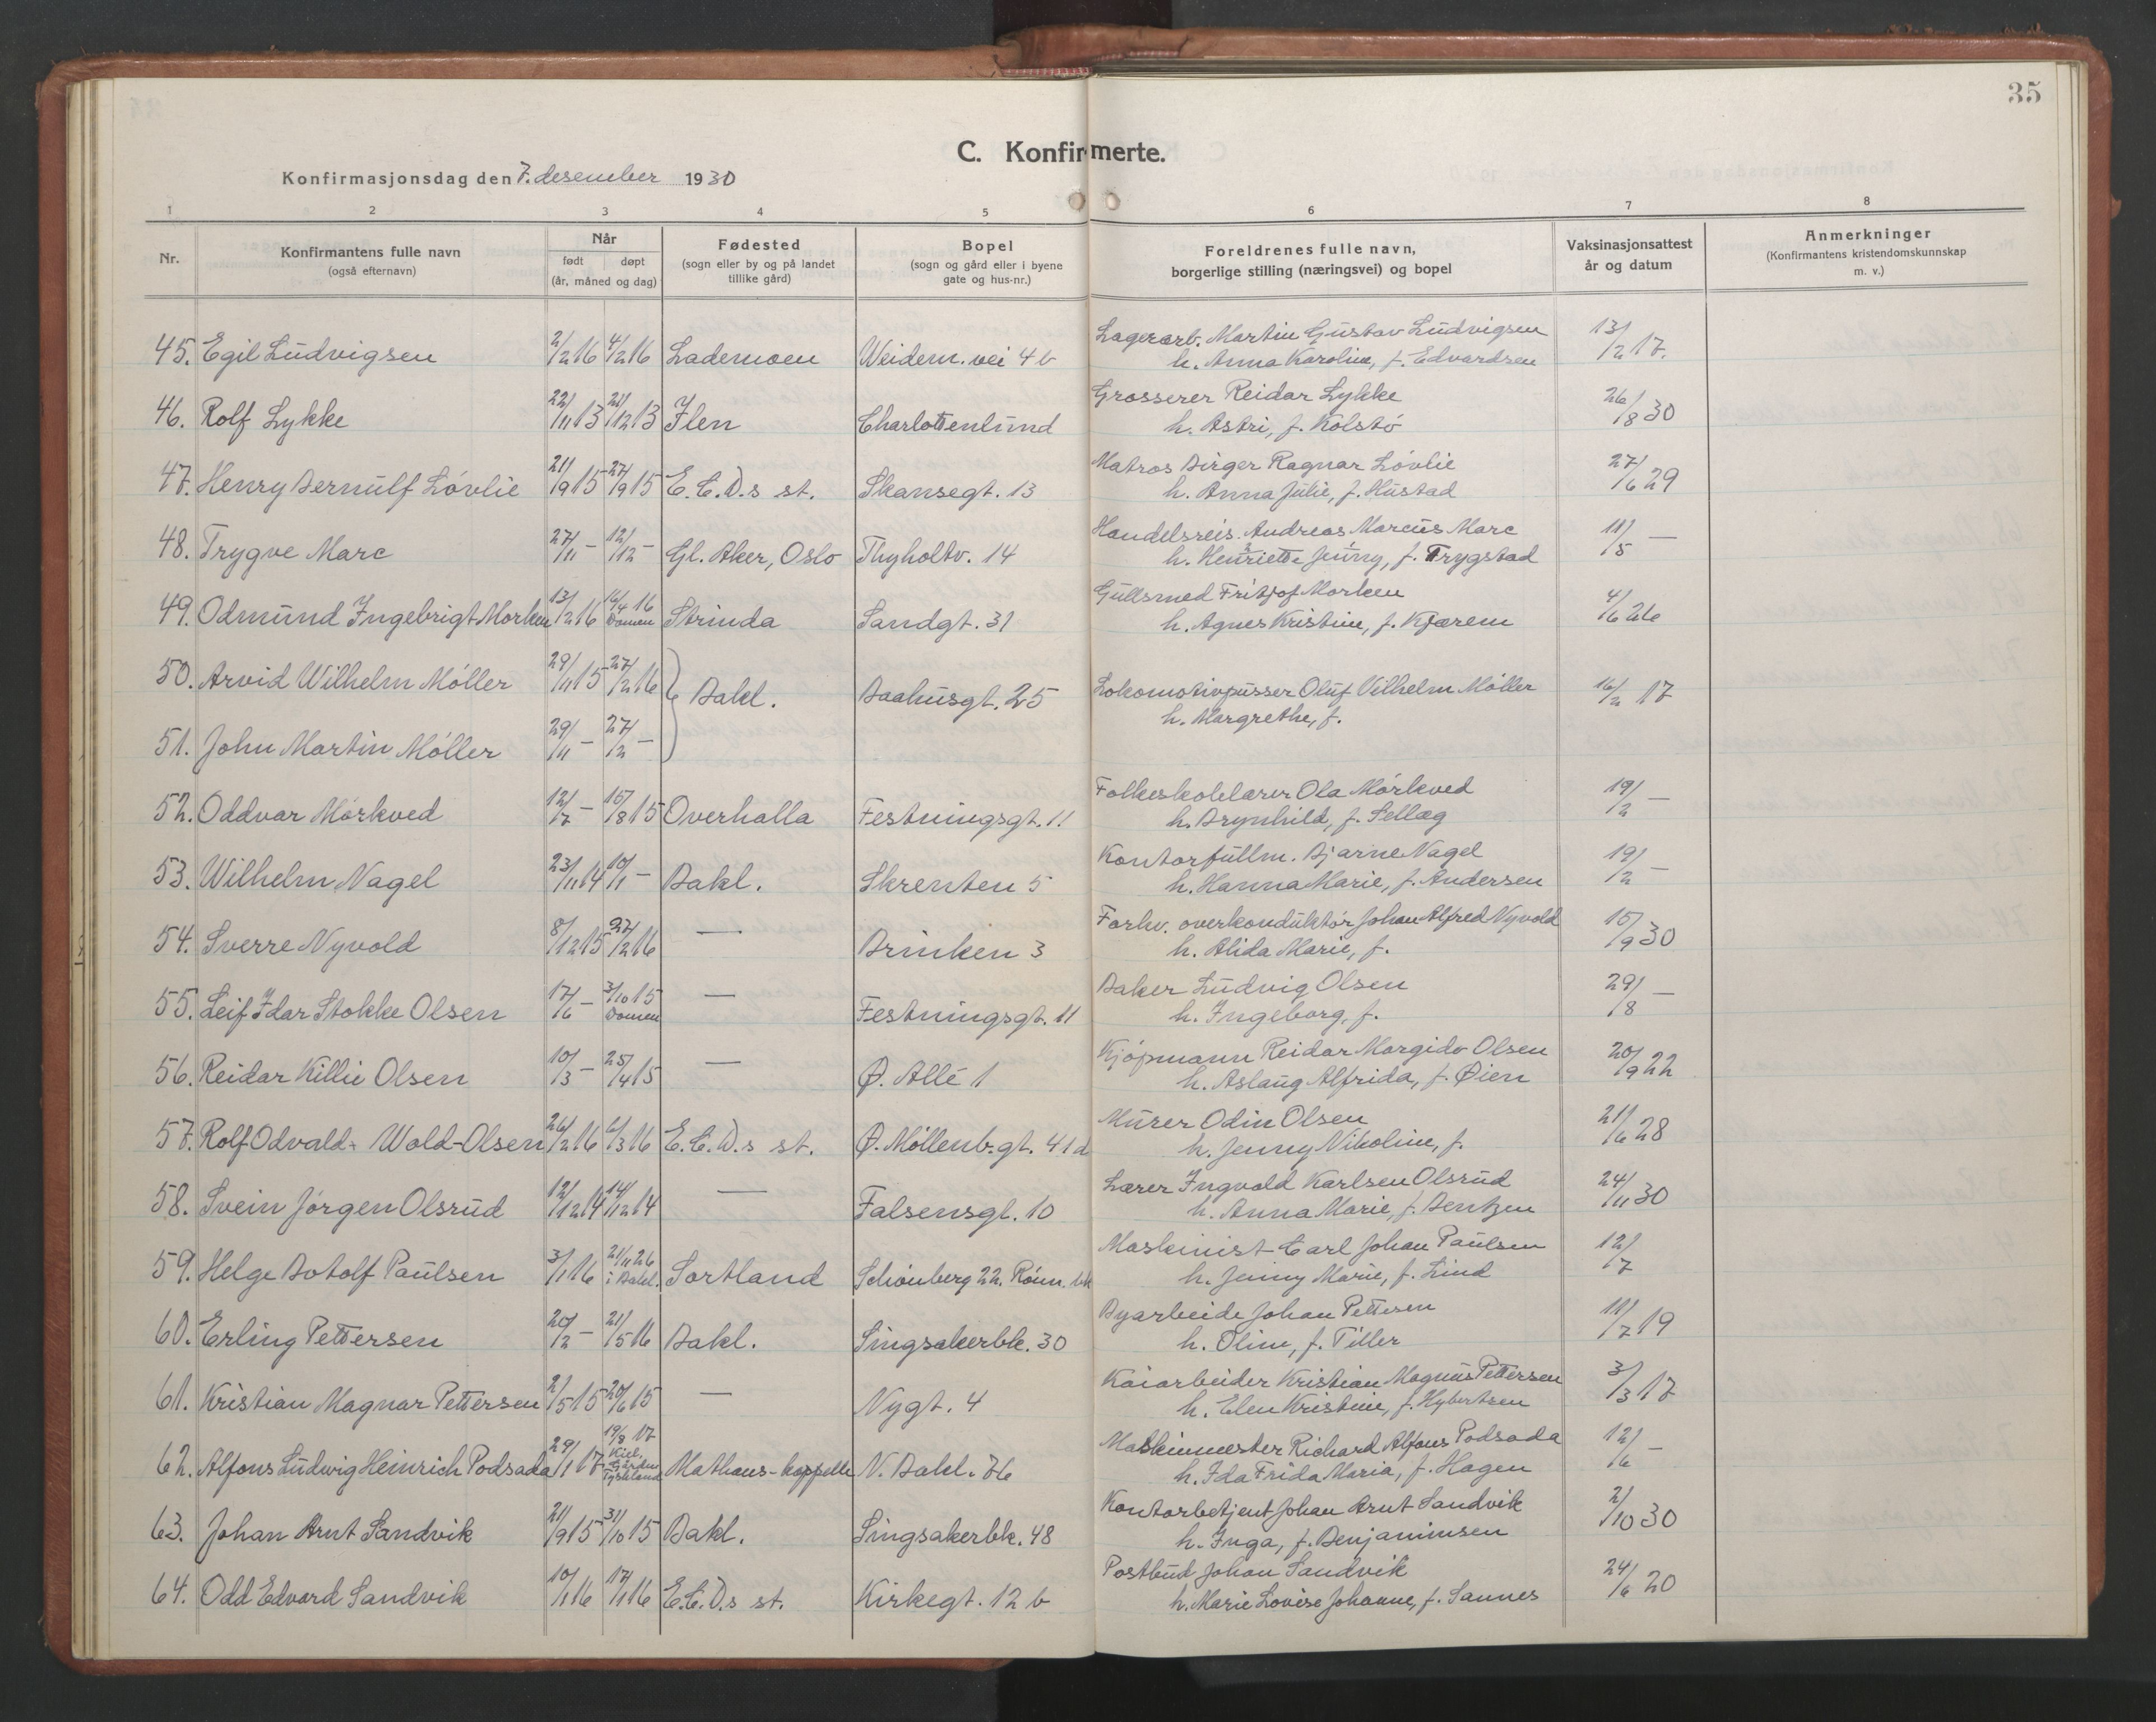 35
C. Konfirmerte.
Konfirmasjonsdag den 7. desember 1930
1 2 3 4 5 6 7 8
Nr.
Konfirmantens fulle navn
(også efternavn)
Når
født døpt
(år, måned og dag)
Fødested
(sogn eller by og på landet
tillike gård)
Bopel
(sogn og gård eller i byene
gate og hus-nr.)
Foreldrenes fulle navn,
borgerlige stilling (næringsvei) og bopel
Vaksinasjonsattest
år og datum
Anmerkninger
(Konfirmantens kristendomskunnskap
m. v.)
45. Egil Ludvigsen 2/2 16 4/2 16 Lademoen Weiderm. vei 4 b Lagerarb. Martin Gustav Ludvigsen 13/2 17.
h. Anna Karoline, f. Edvardsen
46. Rolf Lykke 22/11 13 21/12 13 Ilen Charlottenlund Grosserer Reidar Lykke 26/8 30
h. Astri, f. Kolstö
47. Henry Bernulf Lövlie 21/9 15 27/9 15 E.C.D.s st. Skansegt. 13 Matros Birger Ragnar Lövlie 27/6 29
h. Anna Julie, f. Hustad
48. Trygve Marc 27/11 – 12/12 – Gl. Aker, Oslo Thyholtv. 14 Handelsreis. Andreas Marcus Marc 11/5 —
h. Henriette Jenny, f. Trygstad
49. Odmund Ingebrigt Morken 13/2 16 16/4 16 Domen Strinda Sandgt. 31 Gullsmed Fritjof Morken 4/6 26
h. Agnes Kristine, f. Kjærem
50. Arvid Wilhelm Möller 29/11 15 27/2 16 Bakl. Baahusgt. 25 Lokomotivpusser Oluf Vilhelm Möller 16/2 17
h. Margrethe, f.
51. John Martin Möller 29/11 – 27/2 –
52. Oddvar Mörkved 12/7 – 15/8 15 Overhalla Festningsgt. 11 Folkeskolelærer Ola Mörkved 19/2 —
h. Brynhild, f. Sellæg
53. Wilhelm Nagel 23/11 14 10/1 – Bakl. Skrenten 5 Kontorfullm. Bjarne Nagel 19/2 —
h. Hanna Marie, f. Andersen
54. Sverre Nyvold 8/12 15 27/2 16 — Brinken 3 Forhv. overkonduktör Johan Alfred Nyvold 15/9 30
h. Alida Marie, f.
55. Leif Idar Stokke Olsen 17/6 – 3/10 15 Domen — Festningsgt. 11 Baker Ludvig Olsen 29/8 —
h. Ingeborg, f.
56. Reidar Killie Olsen 10/3 – 25/4 15 — Ø. Allé 1 Kjöpmann Reidar Margido Olsen 20/9 22
h. Aslaug Alfrida, f. Øien
57. Rolf Odvald Wold-Olsen 26/2 16 6/3 16 E.C.D.s st. Ø. Möllenb. gt. 41 d Murer Odin Olsen 21/6 28
h. Jenny Nikoline, f.
58. Svein Jörgen Olsrud 12/12 14 14/12 14 — Falsensgt. 10 Lærer Ingvald Karlsen Olsrud 24/11 30
h. Anna Marie, f. Bentzen
59. Helge Botolf Paulsen 3/1 16 21/11 26 i Bakl. Sortland Schönberg 22. Rönn. bk Maskinist Carl Johan Paulsen 12/7
h. Jenny Marie, f. Lind
60. Erling Pettersen 20/2 – 21/5 16 Bakl. Singsakerbk. 30 Byarbeide Johan Pettersen 11/7 19
h. Oline, f. Tiller
61. Kristian Magnar Pettersen 2/5 15 20/6 15 — Nygt. 4 Kaiarbeider Kristian Magnus Pettersen 3/3 17
h. Elen Kristine, f. Hybertsen
62. Alfons Ludwig Heinrich Podsada 29/1 17 19/8 17 Kiel, Gården Tyskland Mathaus-kappelle N. Bakl. 76 Maskinmester Richard Alfons Podsada 12/6 –
h. Ida Frida Maria, f. Hagen
63. Johan Arnt Sandvik 21/9 15 31/10 15 Bakl. Singsakerbk. 48 Kontorbetjent Johan Arnt Sandvik 2/10 30
h. Inga, f. Benjaminsen
64. Odd Edvard Sandvik 10/1 16 17/1 16 E.C.D.s st. Kirkegt. 12 b Postbud Johan Sandvik 24/6 20
h. Marie Lovise Johanne, f. Sannes